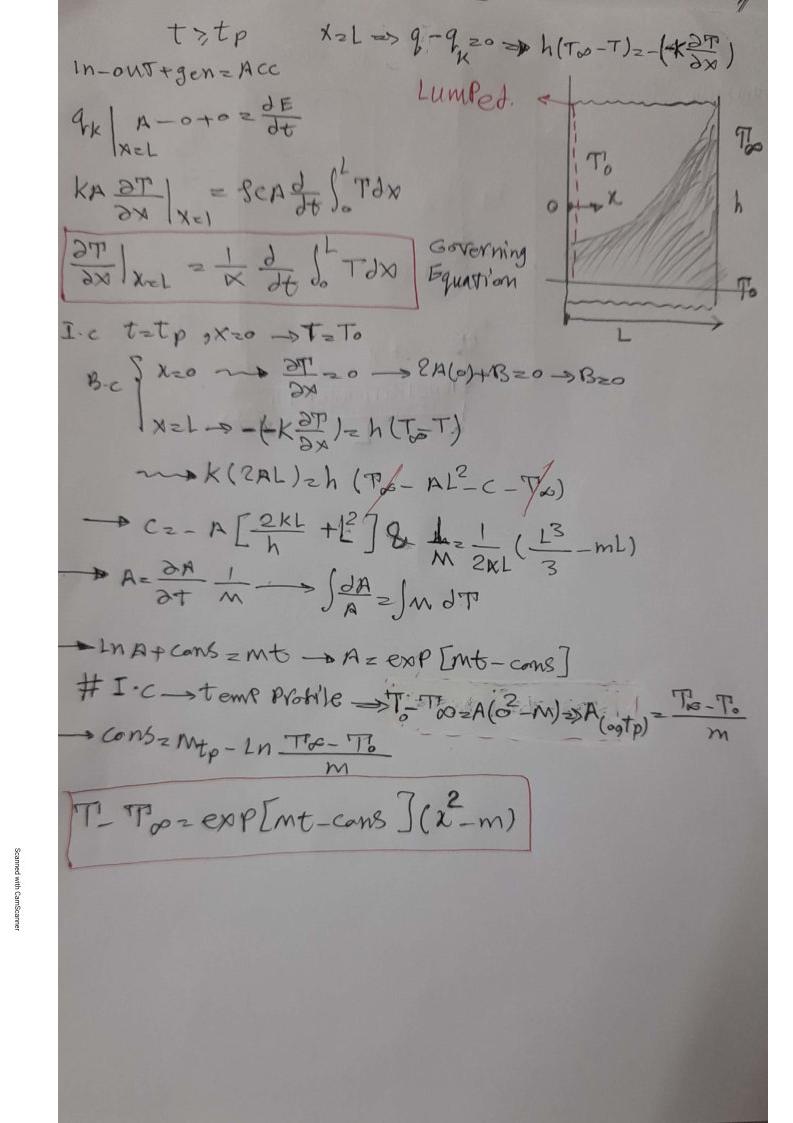 t ≥ tp
x=L => q-qk=0 => h(T∞-T)=-(-K ∂T/∂x)
In-out+gen=Acc
Lumped.
qk|x=L A-0+0 = dE/dt
T∞
T0
0 → x
h
KA ∂T/∂x|x=L = ρcA d/dt ∫0^L Tdx
∂T/∂x|x=L = 1/α d/dt ∫0^L Tdx
Governing
Equation
T0
L
I.c t=tp , x=0 → T=T0
B.c { x=0 ⇝ ∂T/∂x=0 → 2A(0)+B=0 → B=0
x=L → -(-K ∂T/∂x)=h(T∞-T)
⇝ K(2AL)=h (T∞-AL²-c-T∞)
→ C=-A[2KL/h + L²] & 1/M = 1/2αL (L³/3 - mL)
→ A= ∂A/∂t 1/M → ∫dA/A = ∫M dT
→ Ln A+cons=Mt → A=exp[Mt-cons]
# I.c → temp profile => T0-T∞=A(0²-M) => A(0,tp) = T∞-T0/m
→ cons=Mtp-Ln T∞-T0/m
T-T∞=exp[Mt-cons](x²-m)
Scanned with CamScanner